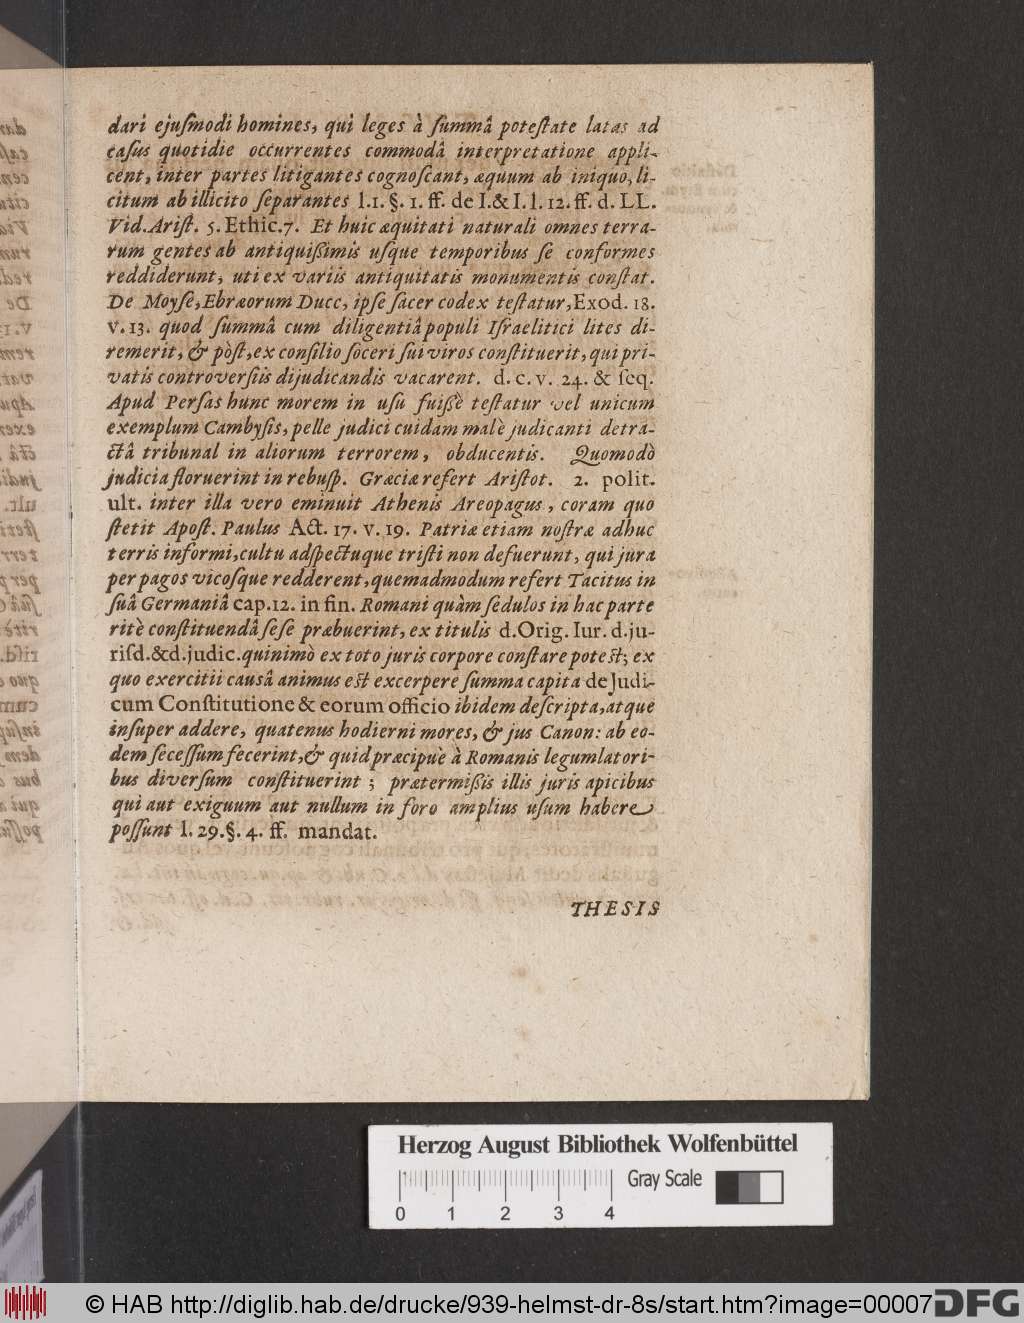 dari ejuſmodi homines, qui leges à ſummâ poteſtate latas ad
caſus quotidie occurrentes commodâ interpretatione appli-
cent, inter partes litigantes cognoſcant, æquum ab iniquo, li-
citum ab illicito ſeparantes l.1. §. 1. ff. de I.& I. l. 12. ff. d. LL.
Vid. Ariſt. 5. Ethic. 7. Et huic æquitati naturali omnes terra-
rum gentes ab antiquißimis uſque temporibus ſe conformes
reddiderunt, uti ex variis antiquitatis monumentis conſtat.
De Moyſe, Ebræorum Duce, ipſe ſacer codex teſtatur, Exod. 18.
v. 13. quod ſummâ cum diligentiâ populi Iſraelitici lites di-
remerit, & pòſt, ex conſilio ſoceri ſui viros conſtituerit, qui pri-
vatis controverſiis dijudicandis vacarent. d. c. v. 24. & ſeq.
Apud Perſas hunc morem in uſu fuißè teſtatur vel unicum
exemplum Cambyſis, pelle judici cuidam malè judicanti detra-
ctâ tribunal in aliorum terrorem, obducentis. Quomodò
judicia floruerint in rebuſp. Græciæ refert Ariſtot. 2. polit.
ult. inter illa vero eminuit Athenis Areopagus, coram quo
ſtetit Apoſt. Paulus Act. 17. v. 19. Patriæ etiam noſtræ adhuc
terris informi, cultu adſpectuque triſti non defuerunt, qui jura
per pagos vicoſque redderent, quemadmodum refert Tacitus in
ſuâ Germaniâ cap. 12. in fin. Romani quàm ſedulos in hac parte
ritè conſtituendâ ſeſe præbuerint, ex titulis d. Orig. Iur. d. ju-
riſd. & d. judic. quinimò ex toto juris corpore conſtare potest; ex
quo exercitii causâ animus est excerpere ſumma capita de Judi-
cum Conſtitutione & eorum officio ibidem deſcripta, atque
inſuper addere, quatenus hodierni mores, & jus Canon: ab eo-
dem ſeceſſum fecerint, & quid præcipuè à Romanis legumlatori-
bus diverſum conſtituerint ; prætermißis illis juris apicibus
qui aut exiguum aut nullum in foro amplius uſum habere
poſſunt l. 29. §. 4. ff. mandat.
THESIS
Herzog August Bibliothek Wolfenbüttel
Gray Scale
0 1 2 3 4
© HAB http://diglib.hab.de/drucke/939-helmst-dr-8s/start.htm?image=00007
DFG